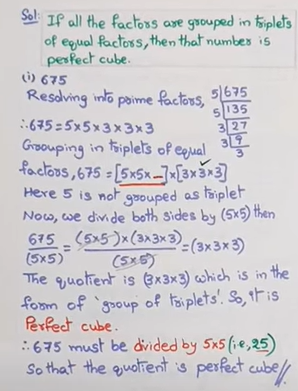 Sol: If all the factors are grouped in triplets
of equal factors, then that number is
perfect cube.
(i) 675
Resolving into prime factors,
5|675
5|135
3|27
3|9
3
∴675=5x5x3x3x3
Grouping in triplets of equal
factors, 675 = [5x5x_]x[3x3x3]
Here 5 is not grouped as triplet
Now, we divide both sides by (5x5) then
675/(5x5) = (5x5)x(3x3x3)/(5x5) = (3x3x3)
The quotient is (3x3x3) which is in the
form of 'group of triplets'. So, it is
Perfect cube.
∴ 675 must be divided by 5x5 (i.e, 25)
So that the quotient is perfect cube//